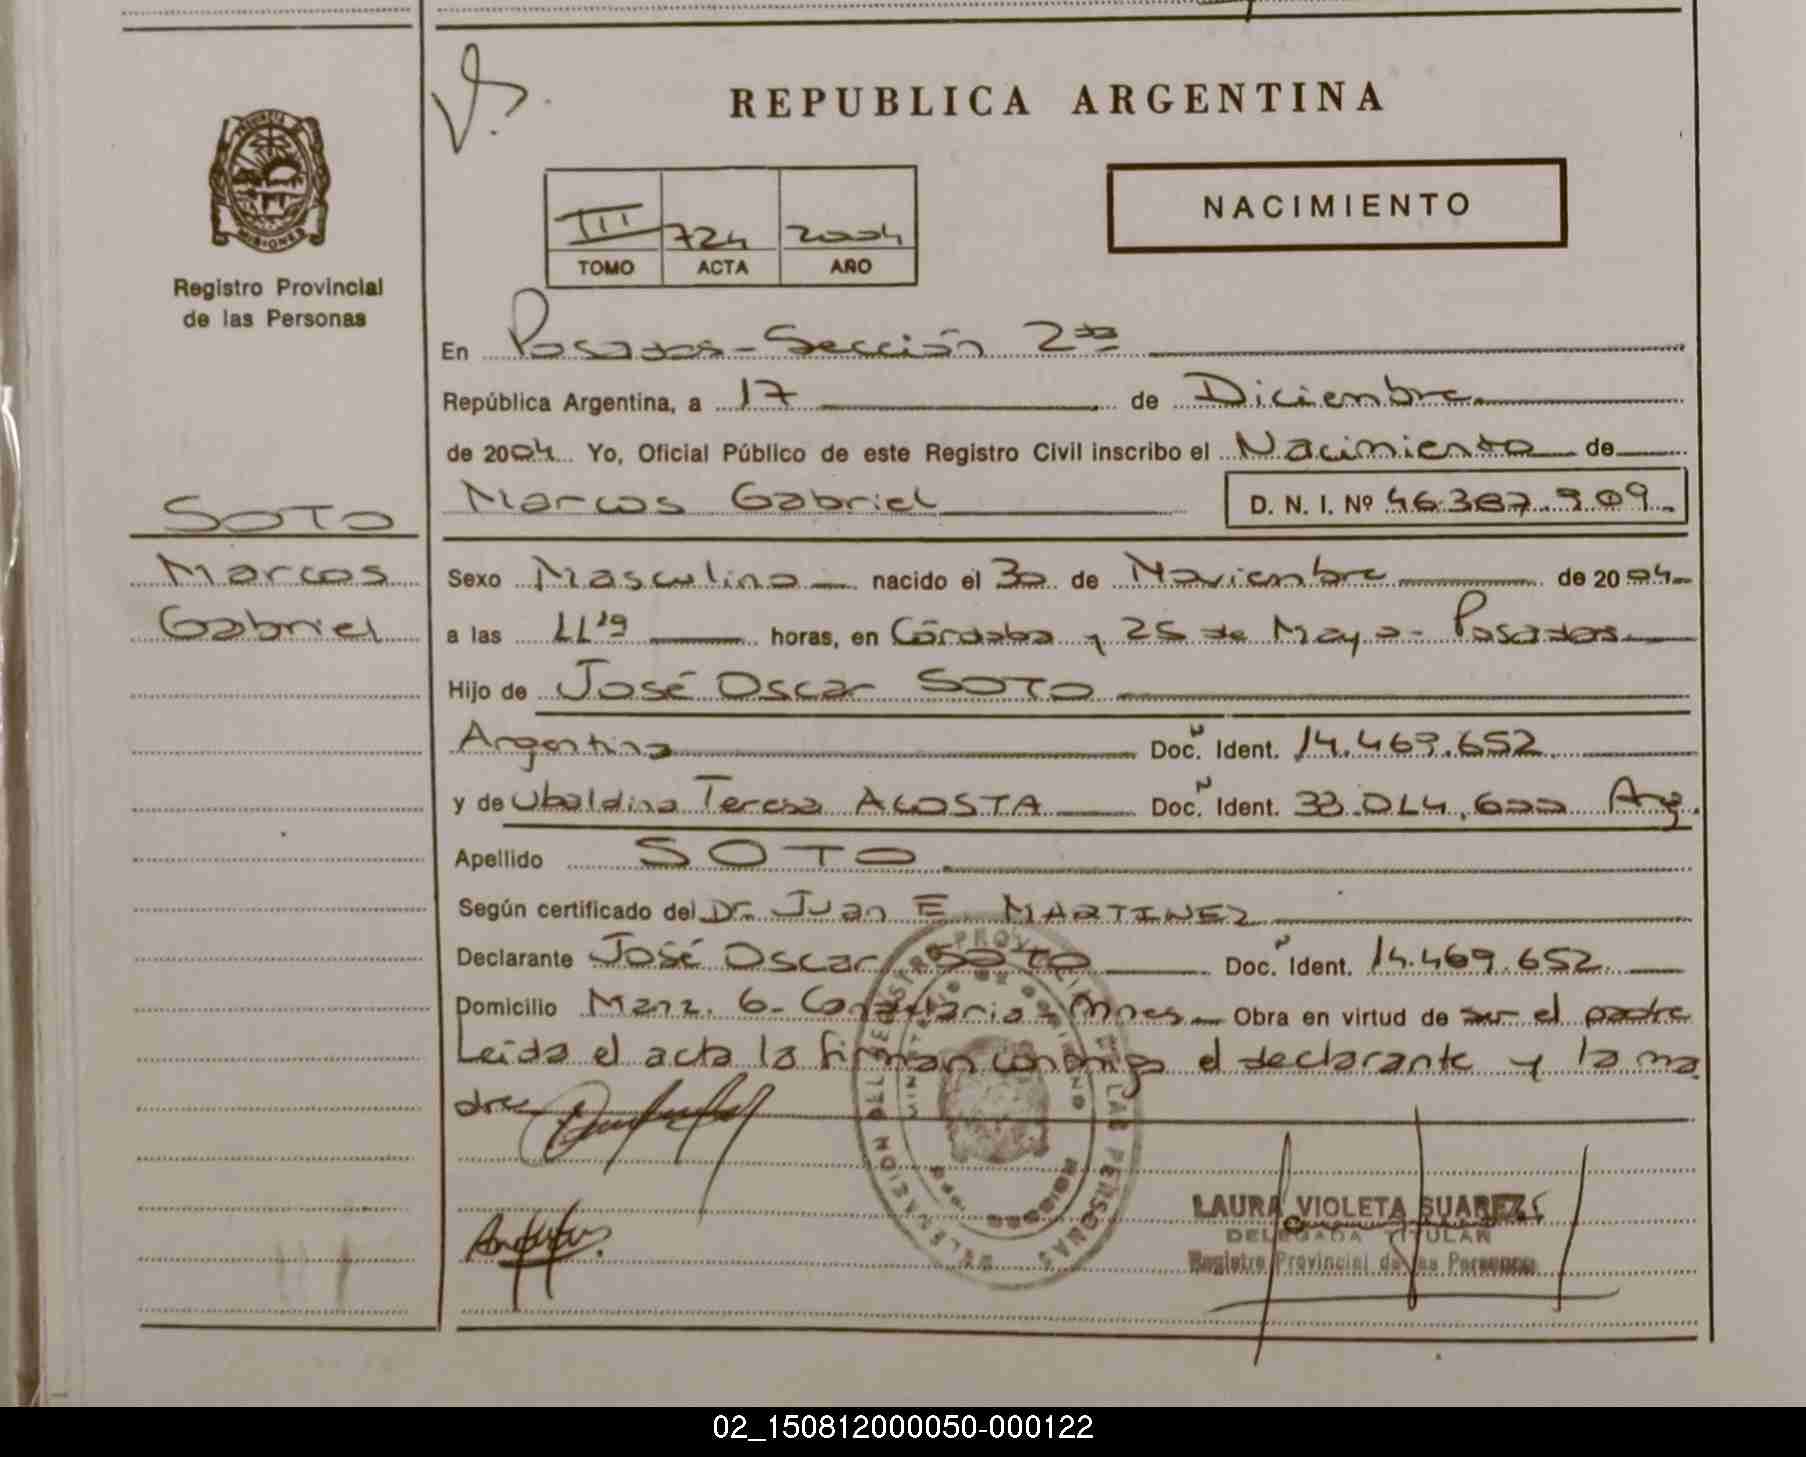 REPUBLICA ARGENTINA
PROVINCIA DE
MISIONES
Registro Provincial
de las Personas
NACIMIENTO
III 724 2004
TOMO ACTA AÑO
En Posadas - Sección 2da
República Argentina, a 17 de Diciembre
de 2004 Yo, Oficial Público de este Registro Civil inscribo el Nacimiento de
SOTO
Marcos Gabriel D. N. I. Nº 46.387.909.
Marcos
Sexo Masculino nacido el 30 de Noviembre de 2004
Gabriel
a las 11'19 horas, en Córdoba y 25 de Mayo - Posadas
Hijo de José Oscar SOTO
Argentina Doc. Ident. 14.469.652
y de Ubaldina Teresa ACOSTA Doc. Ident. 33.014.600 Arg.
Apellido SOTO
Según certificado del Dr. Juan E. MARTINEZ
Declarante José Oscar Soto Doc. Ident. 14.469.652
Domicilio Manz. 6 - Mnes Obra en virtud de ser el padre
Leida el acta la firman conmigo el declarante y la ma
dre
DELEGACION DEL REGISTRO PROVINCIAL DE LAS PERSONAS
LAURA VIOLETA SUAREZ
DELEGADA TITULAR
Registro Provincial de las Personas
02_150812000050-000122